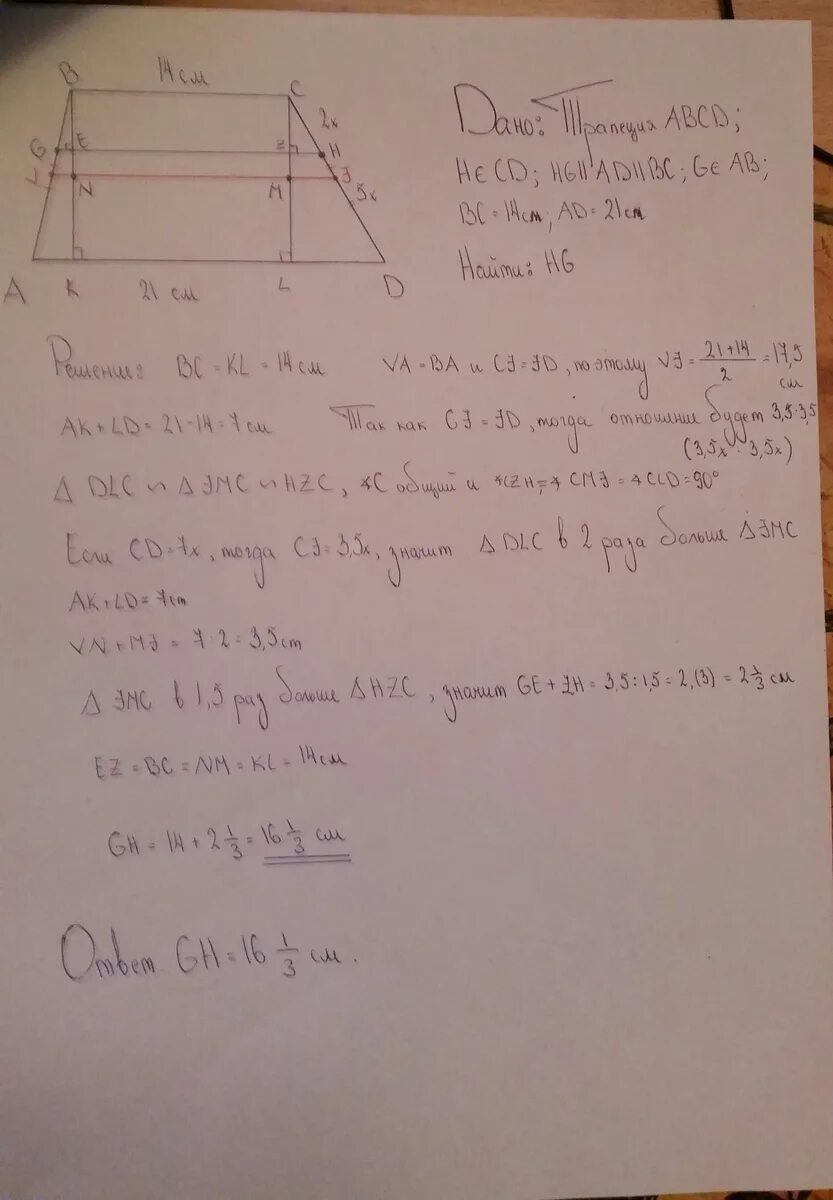 14 см
B
C
2x
G
E
Z
H
V
N
M
J
5x
A
K
21 см
L
D
Дано: Трапеция ABCD;
H∈CD; HG∥AD∥BC; G∈AB;
BC=14см; AD=21см
Найти: HG
Решение: BC=KL=14см VA=BA и CJ=JD, поэтому VJ=(21+14)/2=17,5 см
AK+LD=21-14=7см Так как CJ=JD, тогда отношение будет 3,5:3,5
(3,5x:3,5x)
△DLC ∽ △JMC ∽ HZC, ∢C общий и ∢CZH=∢CMJ=∢CLD=90°
Если CD=7x, тогда CJ=3,5x, значит △DLC в 2 раза больше △JMC
AK+LD=7cm
VN+MJ=7:2=3,5cm
△JMC в 1,5 раз больше △HZC, значит GE+ZH=3,5:1,5=2,(3)=2 1/3 см
EZ=BC=NM=KL=14см
GH=14+2 1/3=16 1/3 см
Ответ GH=16 1/3 см.